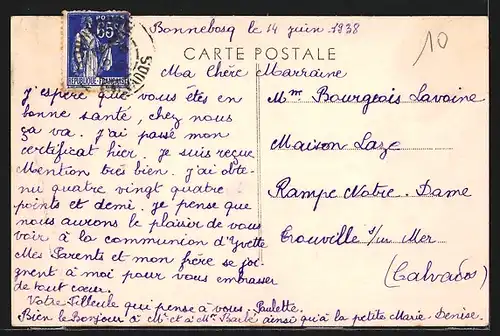 Bonnebosq le 14 juin 1938
10
65
POSTES
REPUBLIQUE FRANÇAISE
CALVADOS
CARTE POSTALE
Ma Chère Marraine
J'espère que vous êtes en
bonne santé, chez nous
ça va. J'ai passé mon
certificat hier. je suis reçue
Mention très bien. j'ai obte-
nu quatre vingt quatre
points et demi. je pense que
nous aurons le plaisir de vous
voir à la communion d'Yvette
Mes Parents et mon frère se joi-
gnent à moi pour vous embrasser
de tout cœur.
Votre Filleule qui pense à vous. Paulette.
Bien le Bonjour à Mr et à Mme ainsi qu'à la petite Marie-Denise.
Mme Bourgeois Lavoine
Maison Laze
Rampe Notre-Dame
Trouville s/ Mer
(Calvados)